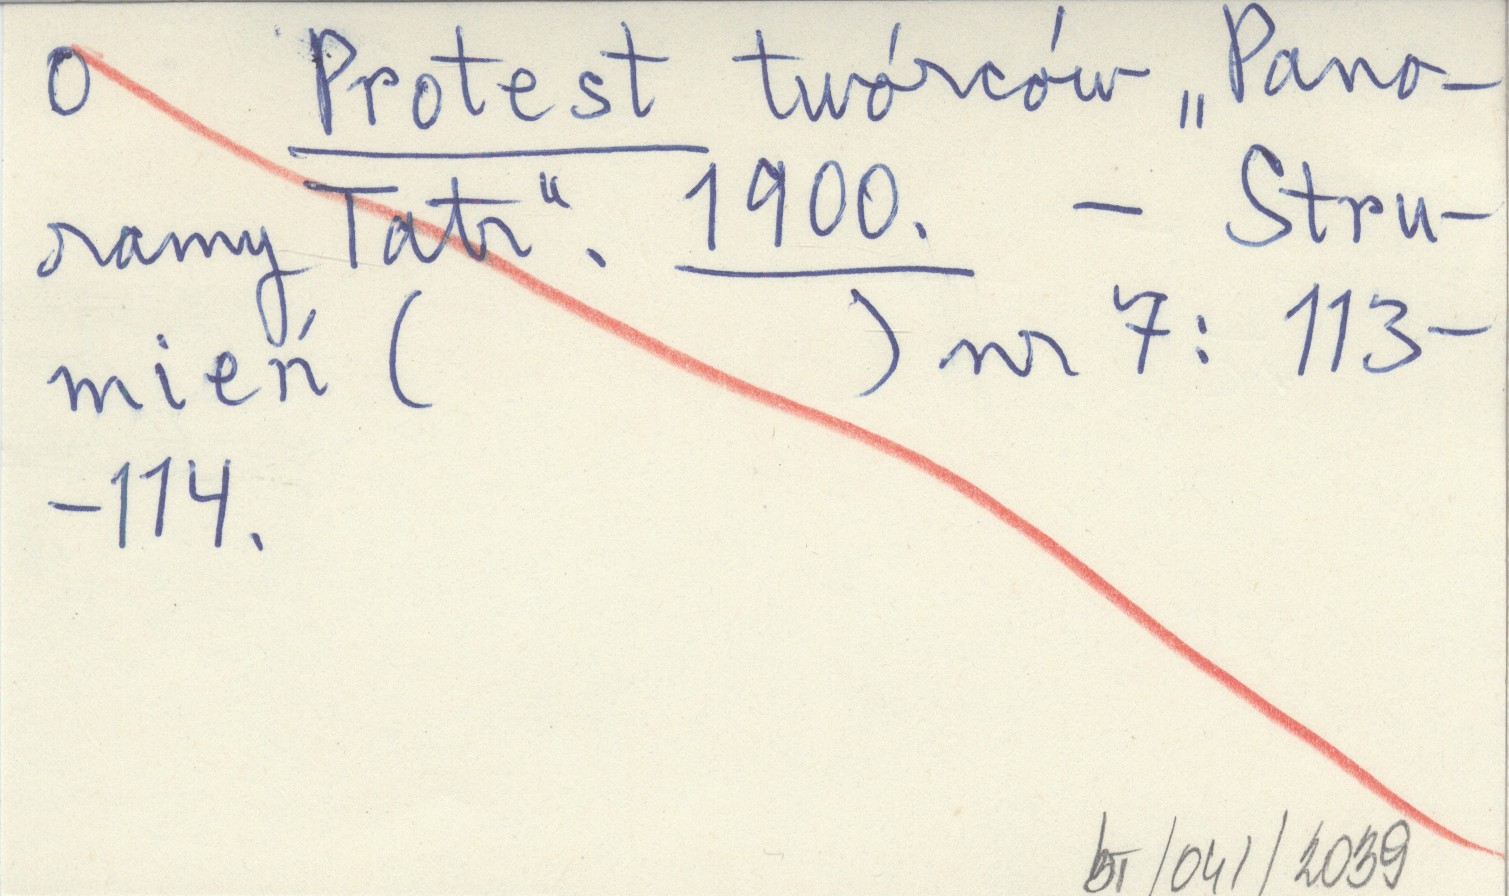 O Protest twórców „Pano-
ramy Tatr". 1900. - Stru-
mień ( ) nr 7: 113-
-114.
bT/041/2039